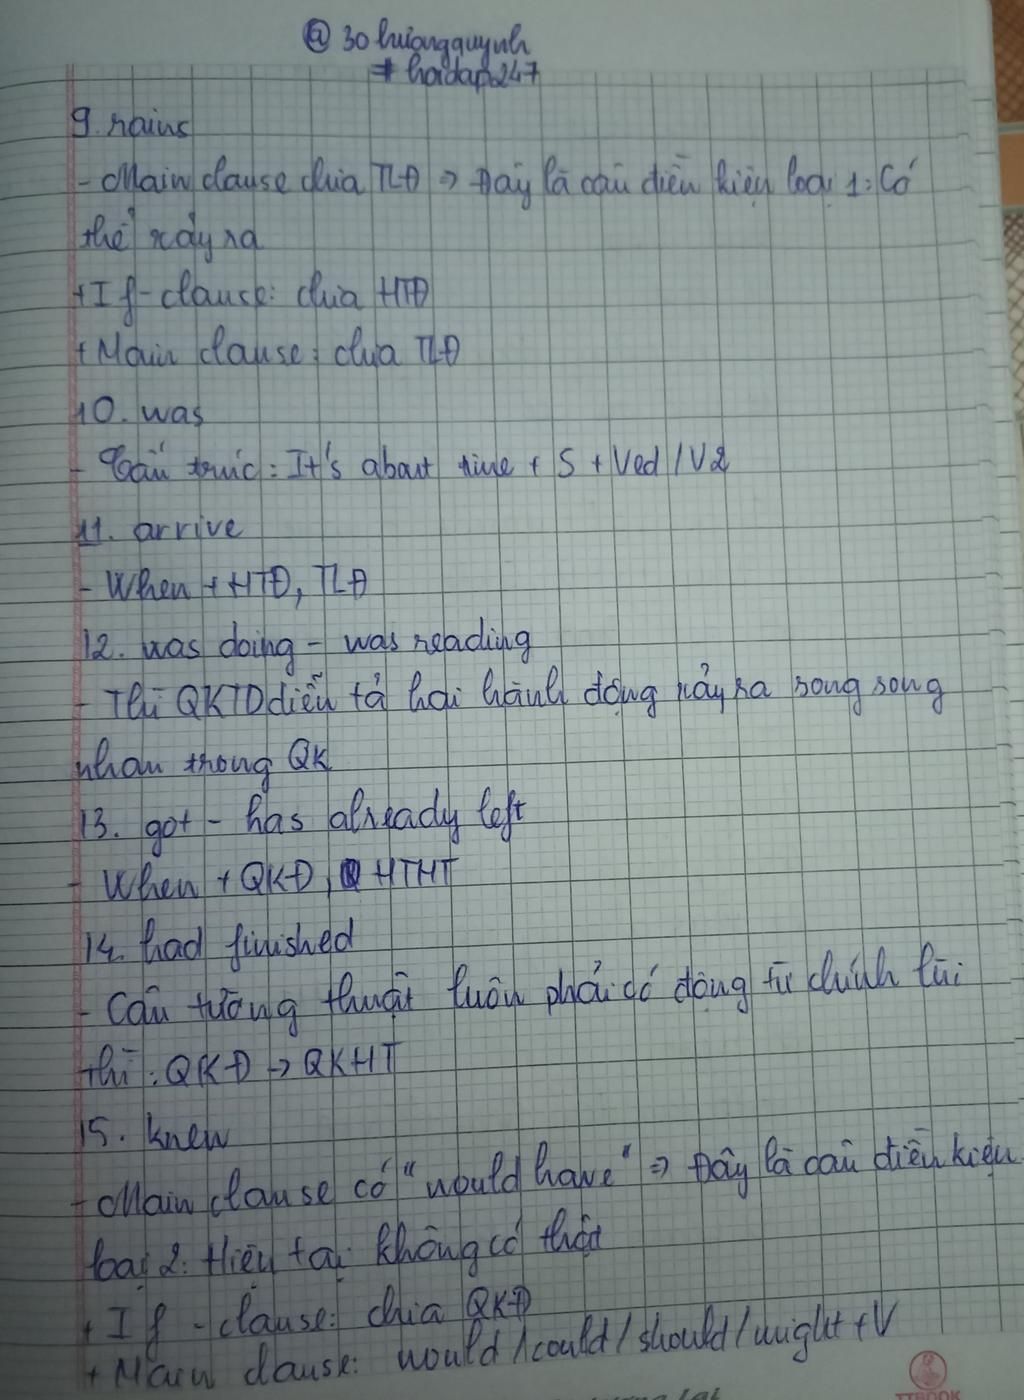 @ 30 huongquynh
# hoidap247
9. rains
- Main clause chia TLĐ => Đây là câu điều kiện loại 1: Có
thể xảy ra
+ If - clause: chia HTĐ
+ Main clause: chia TLĐ
10. was
- Cấu trúc: It's about time + S + Ved / V2
11. arrive
- When + HTĐ, TLĐ
12. was doing - was reading
- Thì QKTD diễn tả hai hành động xảy ra song song
nhau trong QK
13. got - has already left
- When + QKĐ, HTHT
14. had finished
- Câu tường thuật luôn phải có động từ chính lùi
thì: QKĐ -> QKHT
15. knew
- Main clause có "would have" => Đây là câu điều kiện
loại 2: Hiện tại không có thật
+ If - clause: chia QKĐ
+ Main clause: would / could / should / might + V
TTBOOK